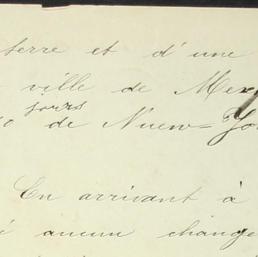 terre et d'une
ville de Mex
jours
de Nuew=Yo
En arrivant à
aucun chang